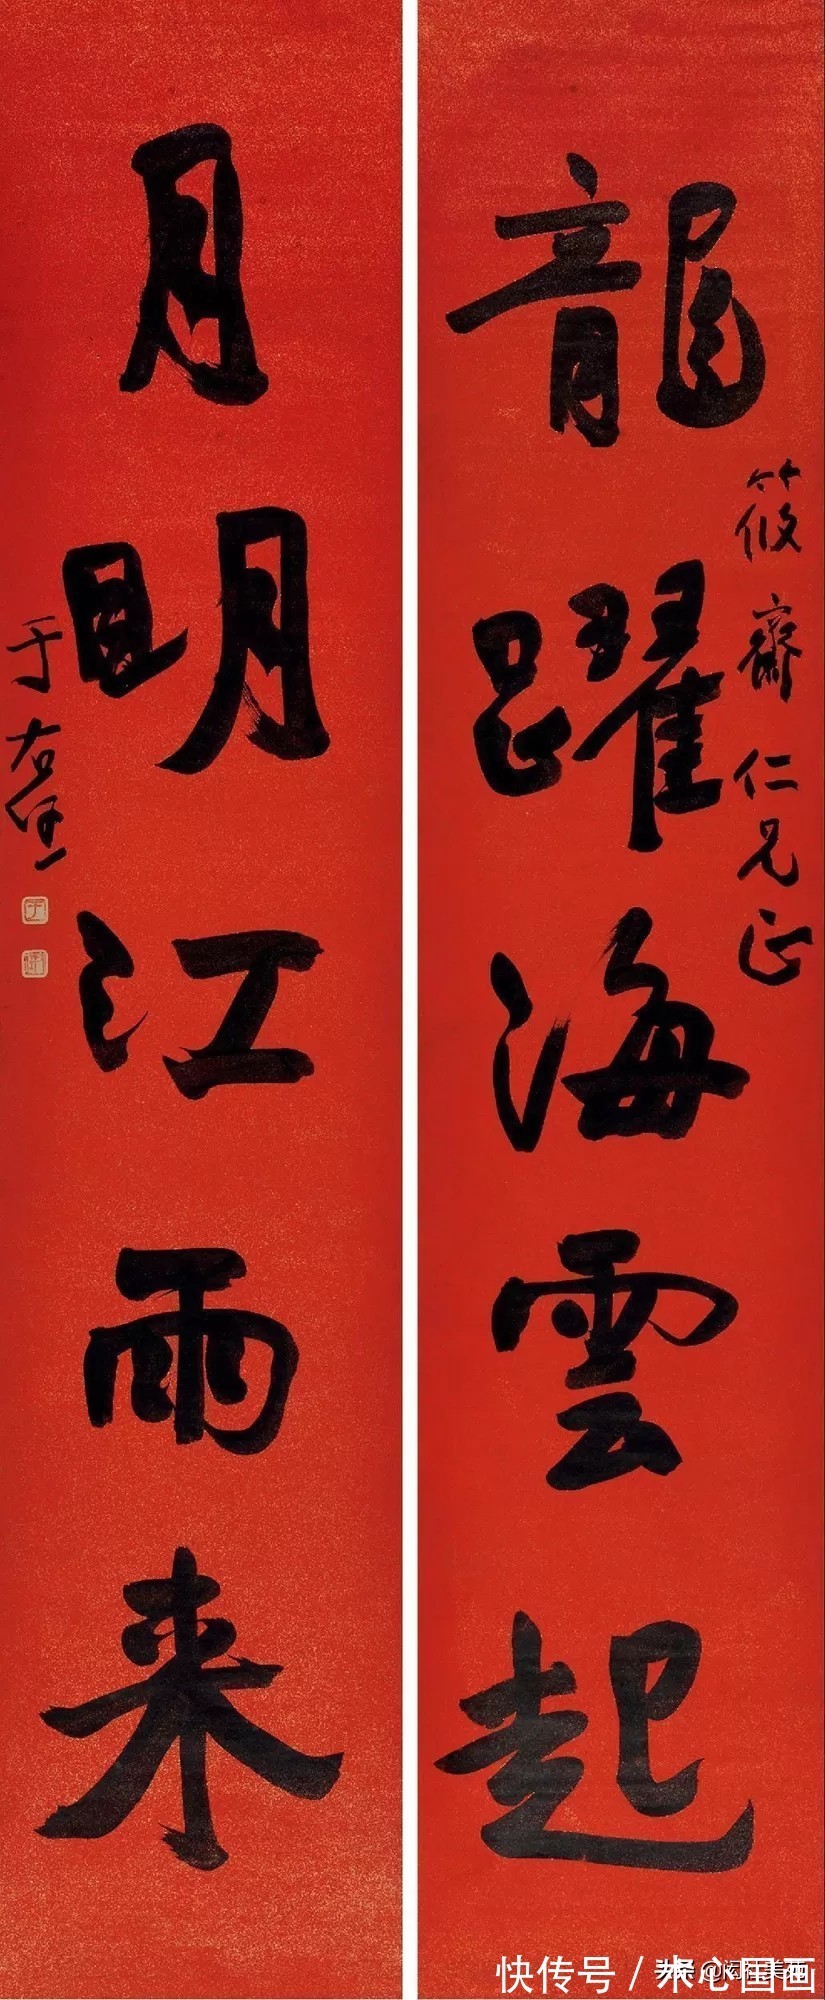 龍躍海雲起
筱齋仁兄正
月明江雨来
于右任
快传号 / 木心国画